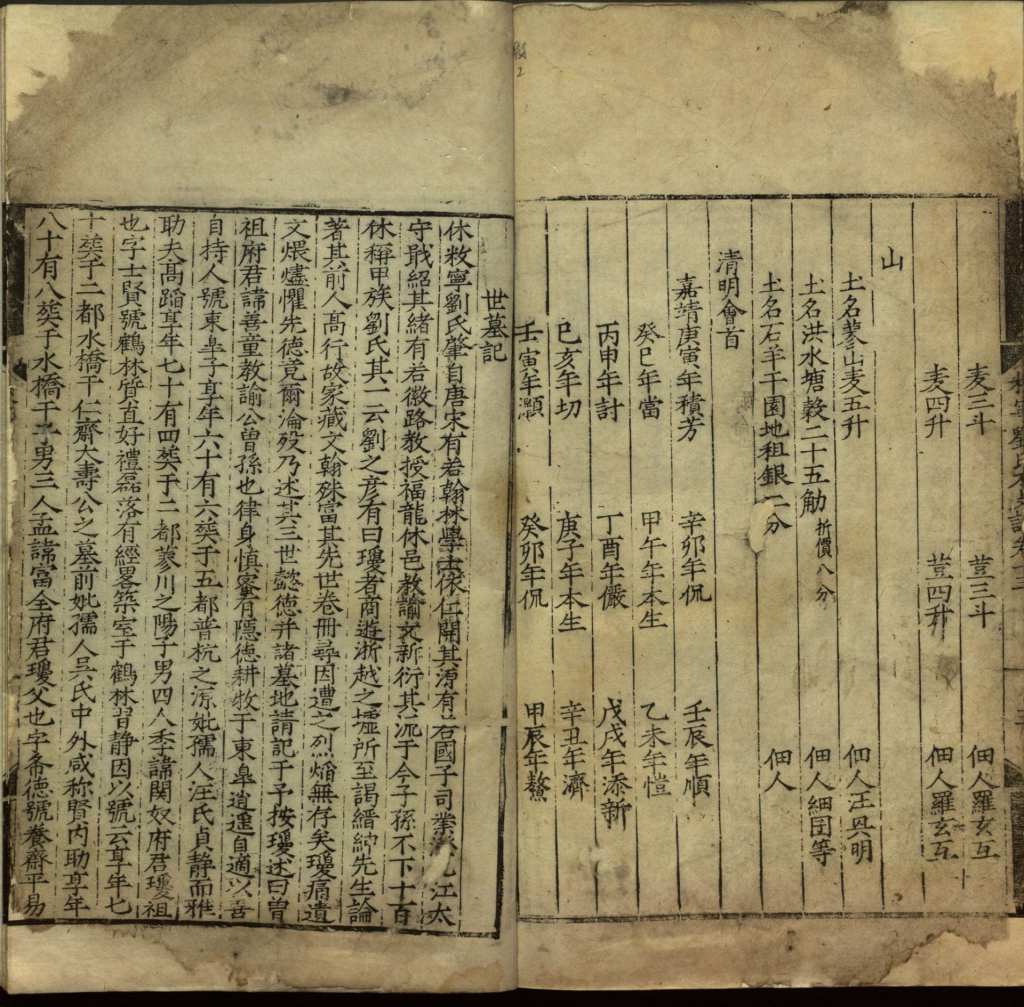 麦三斗　荳三斗　佃人羅玄互
麦四升　荳四升　佃人羅玄互
山
土名蓼山麦五升　佃人汪具明
土名洪水塘穀二十五觔　折價八分　佃人細囝等
土名石羊干園地租銀一分　佃人
清明會首
嘉靖庚寅年積芳　辛卯年侃　壬辰年順
癸巳年當　甲午年本生　乙未年愷
丙申年討　丁酉年儼　戊戌年添新
巳亥年切　庚子年本生　辛丑年濟
壬寅年灝　癸卯年侃　甲辰年鰲
世墓記
休敉寧劉氏肇自唐宋有若翰林學士依仁開其源有若國子司業江太
守戢紹其緒有若徽路教授福龍休邑教諭文新衍其派于今子孫不下十百
休稱甲族劉氏其一云劉之彥有曰瓊者商遊浙越之墟所至謁縉紳先生論
著其前人高行故家藏文翰殊當其先世卷冊尋因遭之烈焰無存矣瓊痛遺
文煨燼懼先德竟爾淪殁乃述其三世懿德并諸墓地請記于予按瓊述曰曾
祖府君諱善童教諭公曽孫也律身慎蜜有隱德耕牧于東臯逍遥自適以善
自持人號東臯子享年六十有六葬于五都普杭之源妣孺人汪氏貞靜而雅
助夫高蹈享年七十有四葬于二都蓼川之陽子男四人季諱関奴府君瓊祖
也字士賢號鶴林質直好禮磊落有經畧築室于鶴林習静因以號云享年七
十葬于二都水橋干仁齋大壽公之墓前妣孺人吳氏中外咸称賢内助享年
八十有八葬于水橋干子男三人孟諱富全府君瓊父也字希德號養齋平易